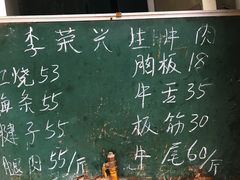 李荣兴生牛肉
红烧53 胸板18
梅条55 牛舌35
腱子55 板筋30
腿肉55/斤 牛尾60/斤